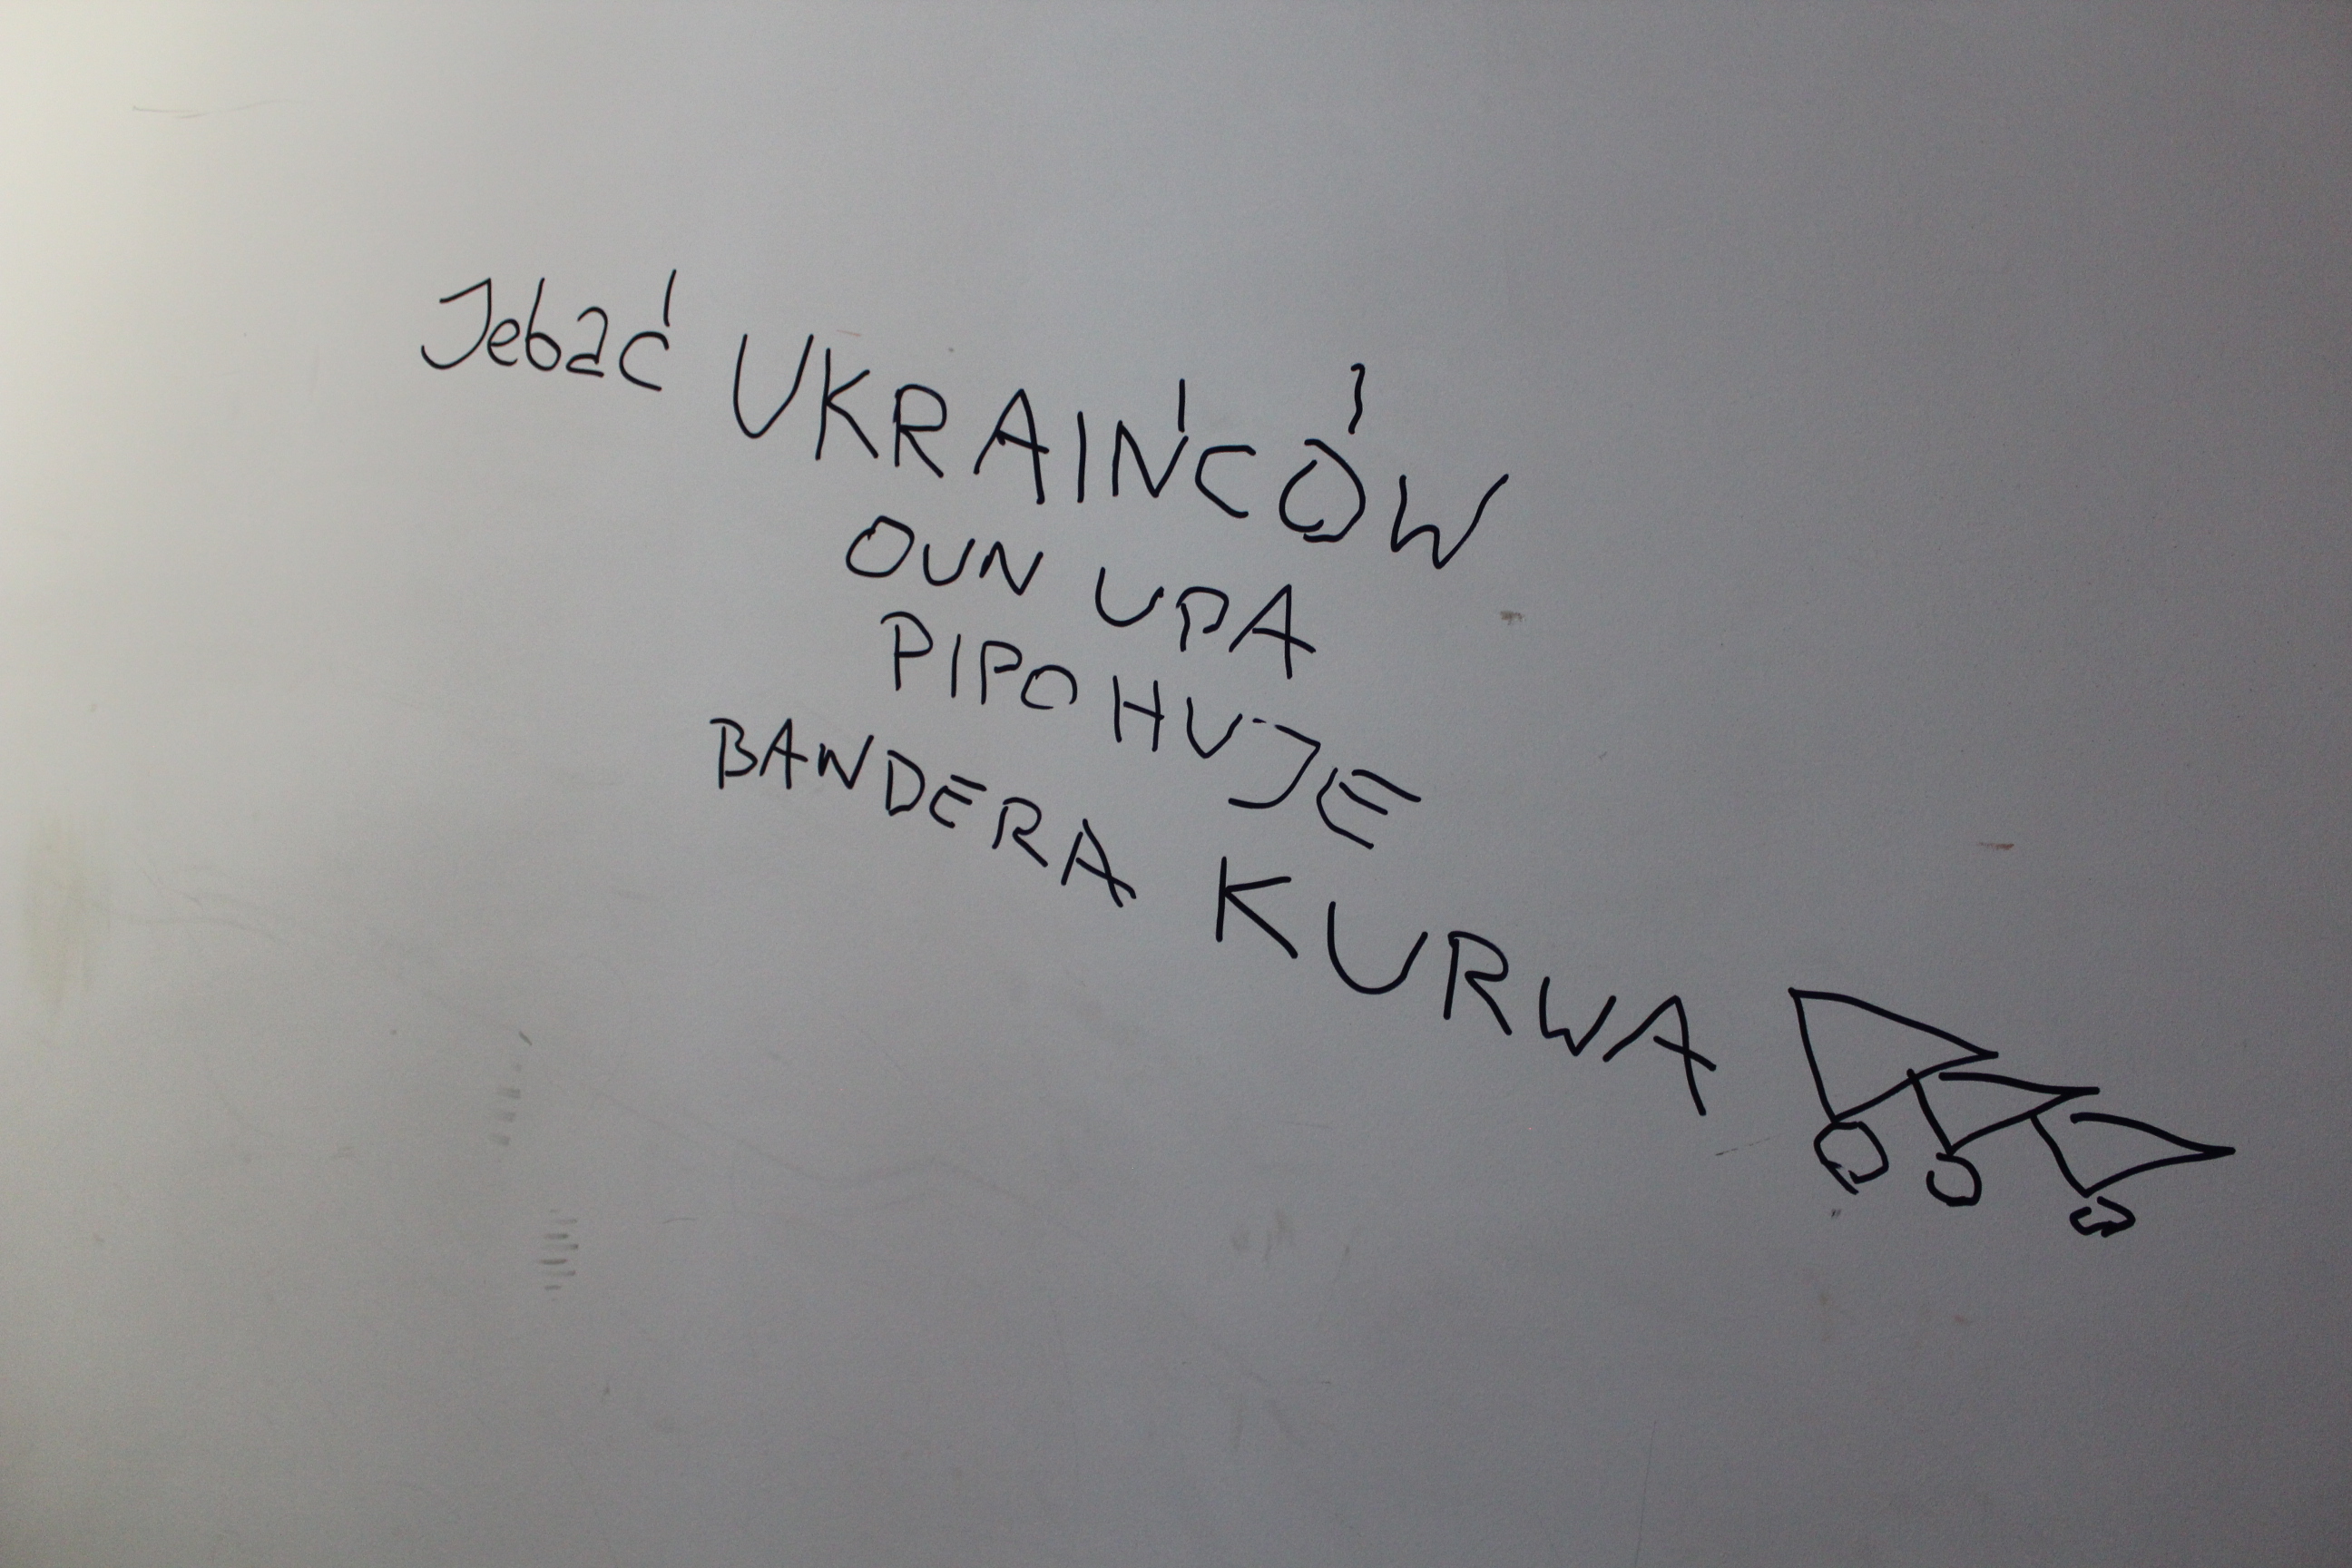 Jebać UKRAIŃCÓW
OUN UPA
PIPO HUJE
BANDERA KURWA